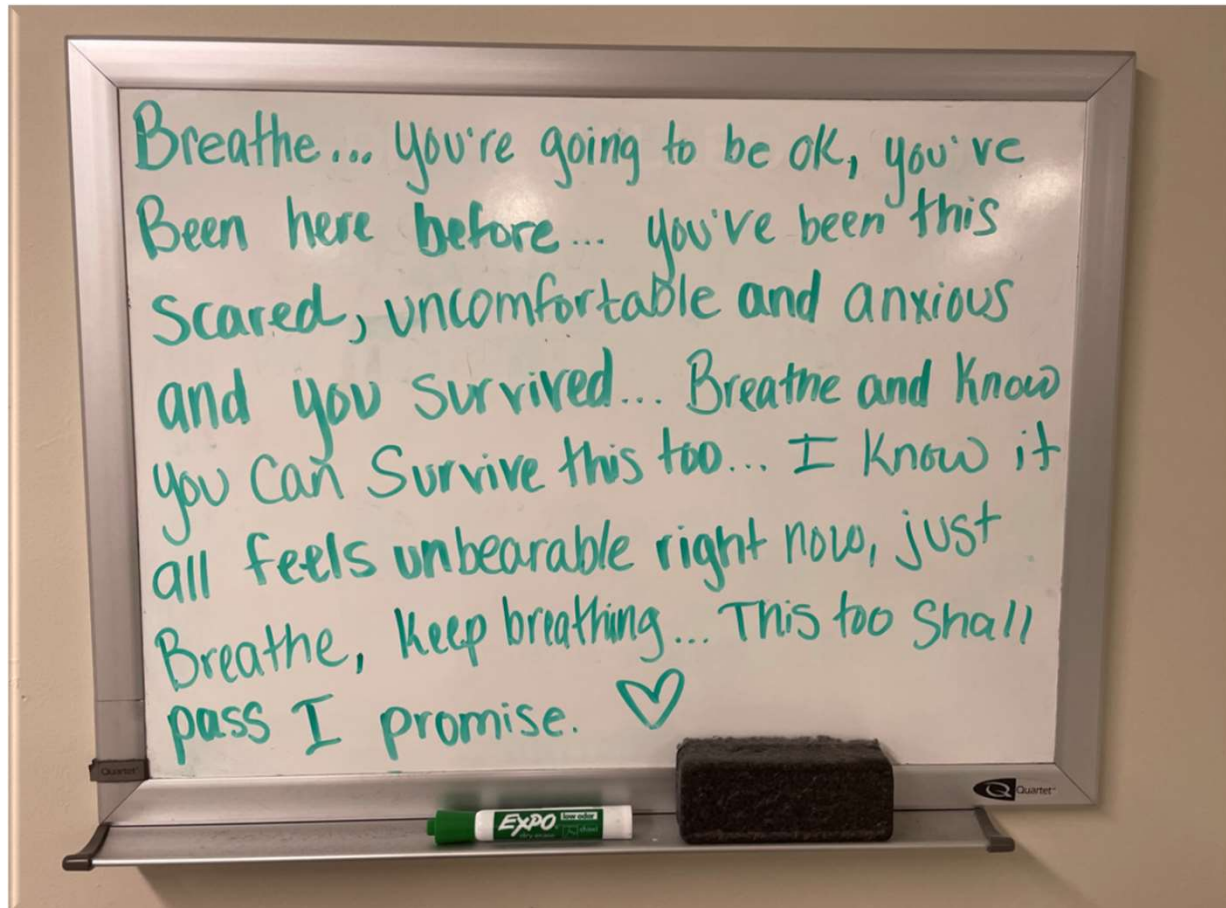 Breathe... you're going to be ok, you've
Been here before... you've been this
scared, uncomfortable and anxious
and you survived... Breathe and know
you can survive this too... I know it
all feels unbearable right now, just
Breathe, keep breathing... This too shall
pass I promise. ♡
Quartet
Quartet
EXPO
low odor
dry erase
chisel